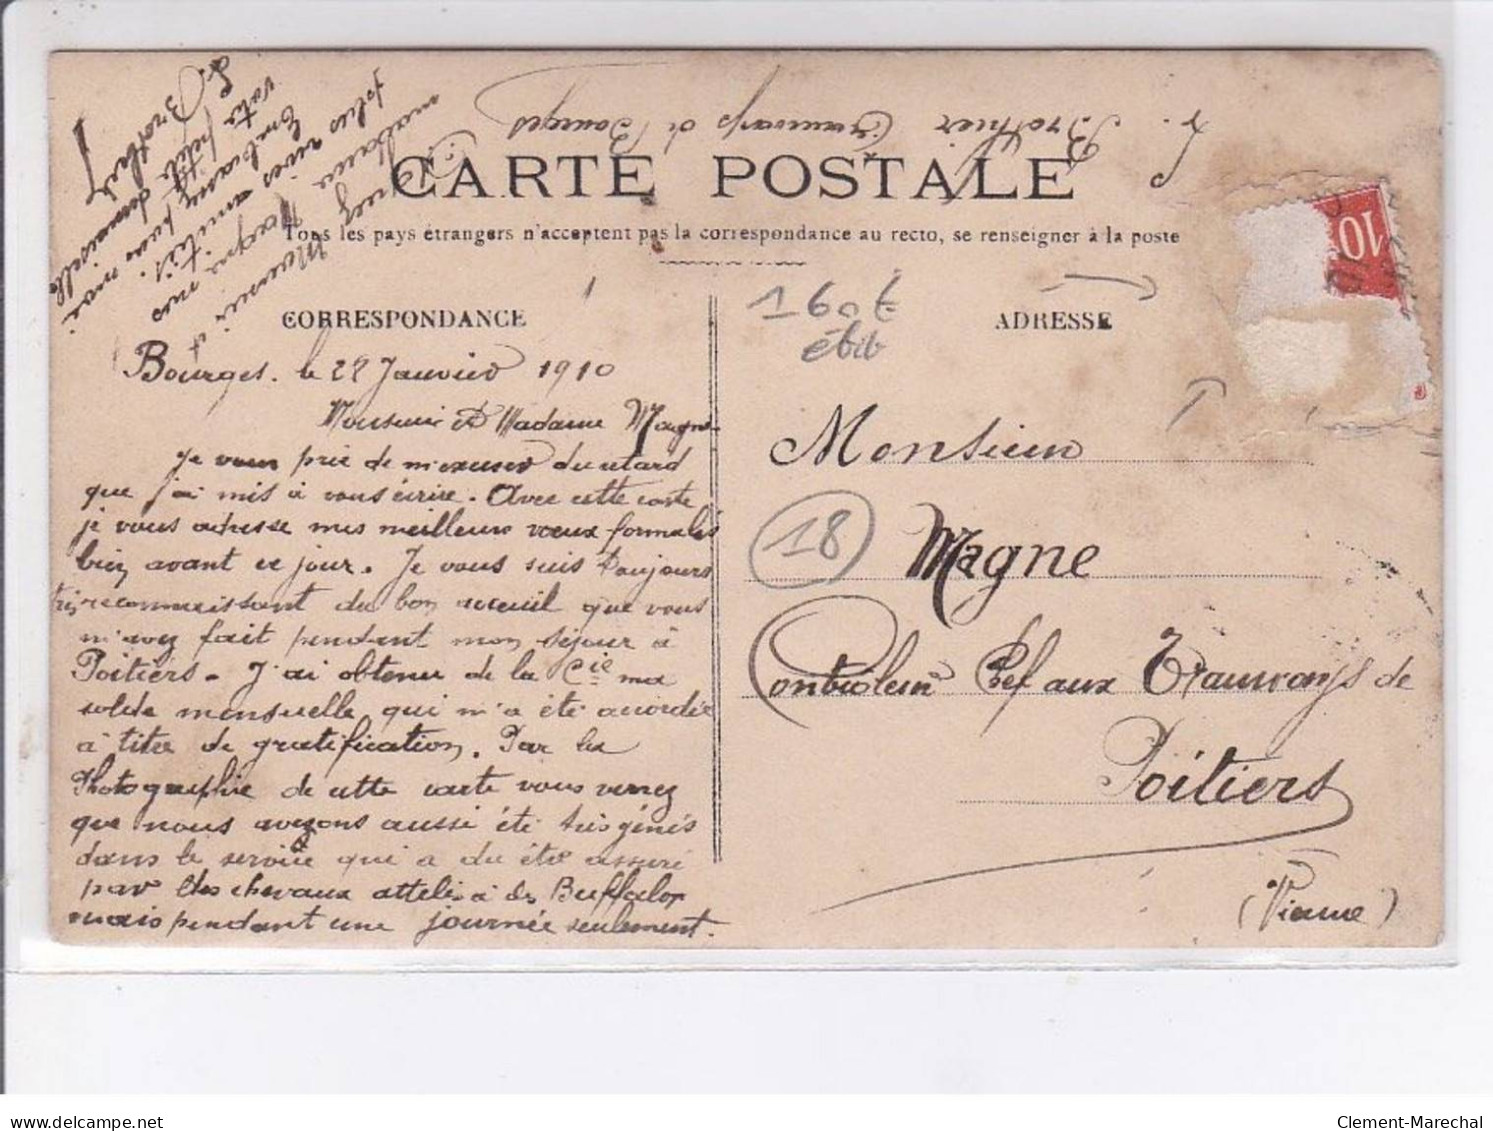 L. Brothier Tramways de Bourges
CARTE POSTALE
Tous les pays étrangers n'acceptent pas la correspondance au recto, se renseigner à la poste
CORRESPONDANCE
ADRESSE
160 €
ébib
18
10
Bourges. le 27 Janvier 1910
Monsieur et Madame Magne
Je vous prie de m'excuser du retard
que j'ai mis à vous écrire. Avec cette carte
je vous adresse mes meilleurs vœux formulés
bien avant ce jour. Je vous suis toujours
très reconnaissant du bon acceuil que vous
m'avez fait pendant mon séjour à
Poitiers. J'ai obtenu de la Cie ma
solde mensuelle qui m'a été accordée
à titre de gratification. Par la
Photographie de cette carte vous verrez
que nous avons aussi été très gênés
dans le service qui a du être assuré
par des chevaux attelés à des Buffalos
mais pendant une journée seulement.
Recevez Monsieur et
Madame Magne mes
plus vives amitiés.
Embrassez pour moi
votre petite demoiselle
L. Brothier
Monsieur
Magne
Controleur Chef aux Tramways de
Poitiers
(Vienne)
Clement-Marechal
www.delcampe.net